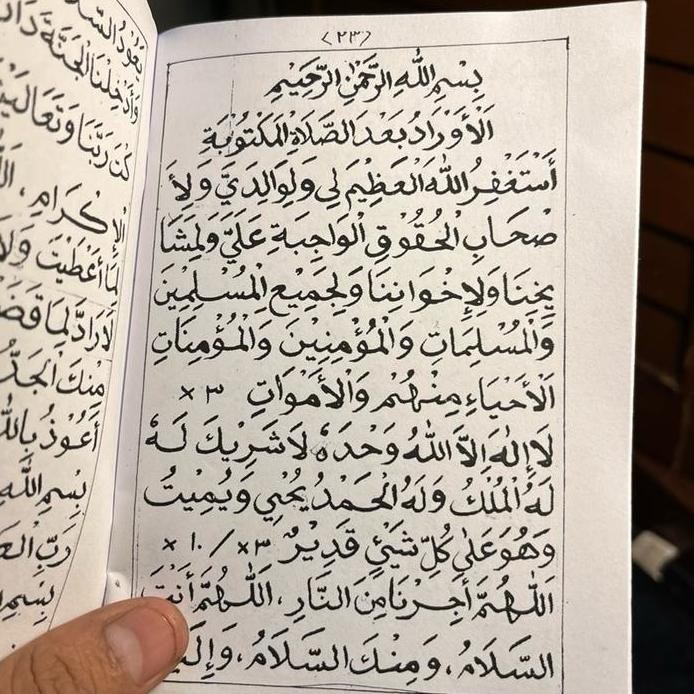 <٢٣>
بِسْمِ اللهِ الرَّحْمٰنِ الرَّحِيْمِ
الْأَوْرَادُ بَعْدَ الصَّلَاةِ الْمَكْتُوْبَةِ
أَسْتَغْفِرُ اللهَ الْعَظِيْمَ لِي وَلِوَالِدَيَّ وَلِأَ
صْحَابِ الْحُقُوْقِ الْوَاجِبَةِ عَلَيَّ وَلِمَشَا
يِخِنَا وَلِإِخْوَانِنَا وَلِجَمِيْعِ الْمُسْلِمِيْنَ
وَالْمُسْلِمَاتِ وَالْمُؤْمِنِيْنَ وَالْمُؤْمِنَاتِ
الْأَحْيَاءِ مِنْهُمْ وَالْأَمْوَاتِ ٣ ×
لَا إِلٰهَ إِلَّا اللهُ وَحْدَهُ لَا شَرِيْكَ لَهُ
لَهُ الْمُلْكُ وَلَهُ الْحَمْدُ يُحْيِي وَيُمِيْتُ
وَهُوَ عَلٰى كُلِّ شَيْئٍ قَدِيْرٌ ٣× / ١٠ ×
اَللّٰهُمَّ أَجِرْنَا مِنَ النَّارِ ، اَللّٰهُمَّ أَنْتَ
السَّلَامُ ، وَمِنْكَ السَّلَامُ ، وَإِلَيْ
يَعُوْدُ السَّلَا
وَأَدْخِلْنَا الْجَنَّةَ دَا
رَبَّنَا وَتَعَالَيْ
الْإِكْرَامِ ،
لِمَا أَعْطَيْتَ وَلَا
لَا رَادَّ لِمَا قَضَ
مِنْكَ الْجَدُّ
أَعُوْذُ بِاللهِ
بِسْمِ اللهِ
رَبِّ الْعَ
بِسْمِ